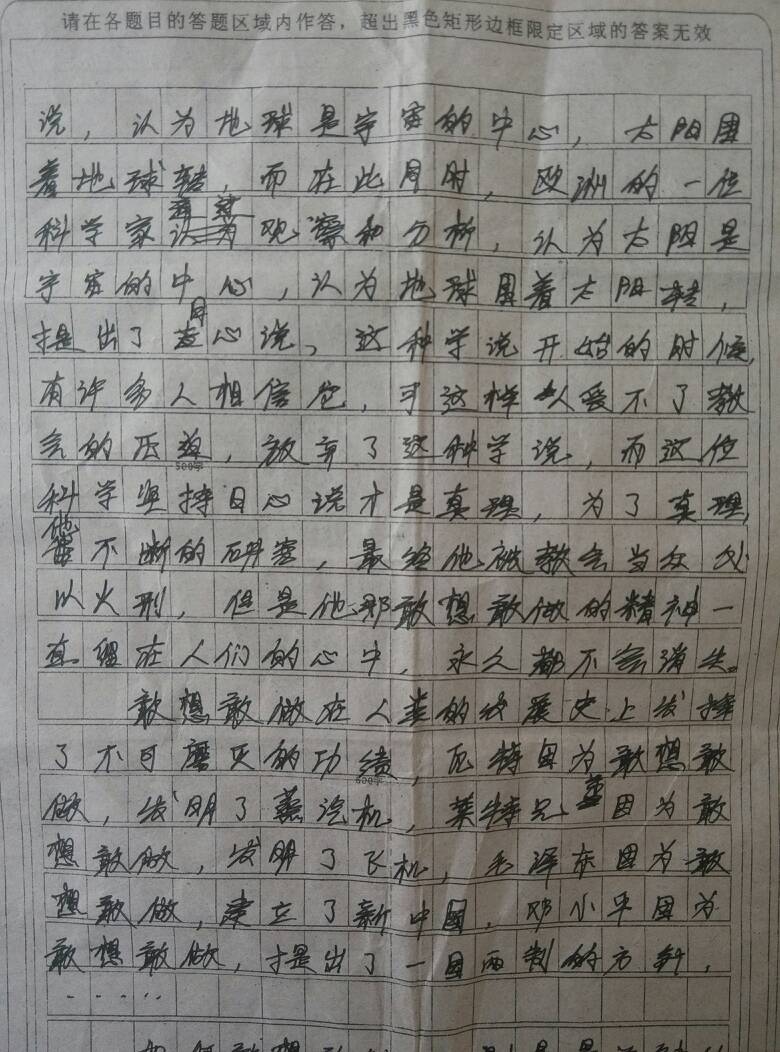 请在各题目的答题区域内作答，超出黑色矩形边框限定区域的答案无效
说，认为地球是宇宙的中心，太阳围
着地球转，而在此同时，欧洲的一位
科学家通过观察和分析，认为太阳是
宇宙的中心，认为地球围着太阳转，
提出了日心说，这种学说开始的时候，
有许多人相信他，可这样人受不了教
会的压迫，放弃了这种学说，而这位
500字
科学坚持日心说才是真理，为了真理，
他不断的研究，最终他被教会当众处
以火刑，但是他那敢想敢做的精神一
直留在人们的心中，永久都不会消失。
敢想敢做在人类的发展史上发挥
了不可磨灭的功绩，瓦特因为敢想敢
600字
做，发明了蒸汽机，莱特兄弟因为敢
想敢做，发明了飞机，毛泽东因为敢
想敢做，建立了新中国，邓小平因为
敢想敢做，提出了一国两制的方针，
······